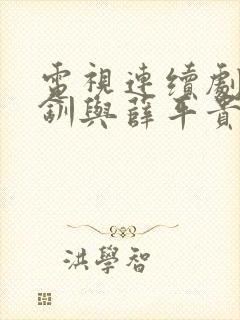 電視連續劇
釧與薛平貴
洪學智